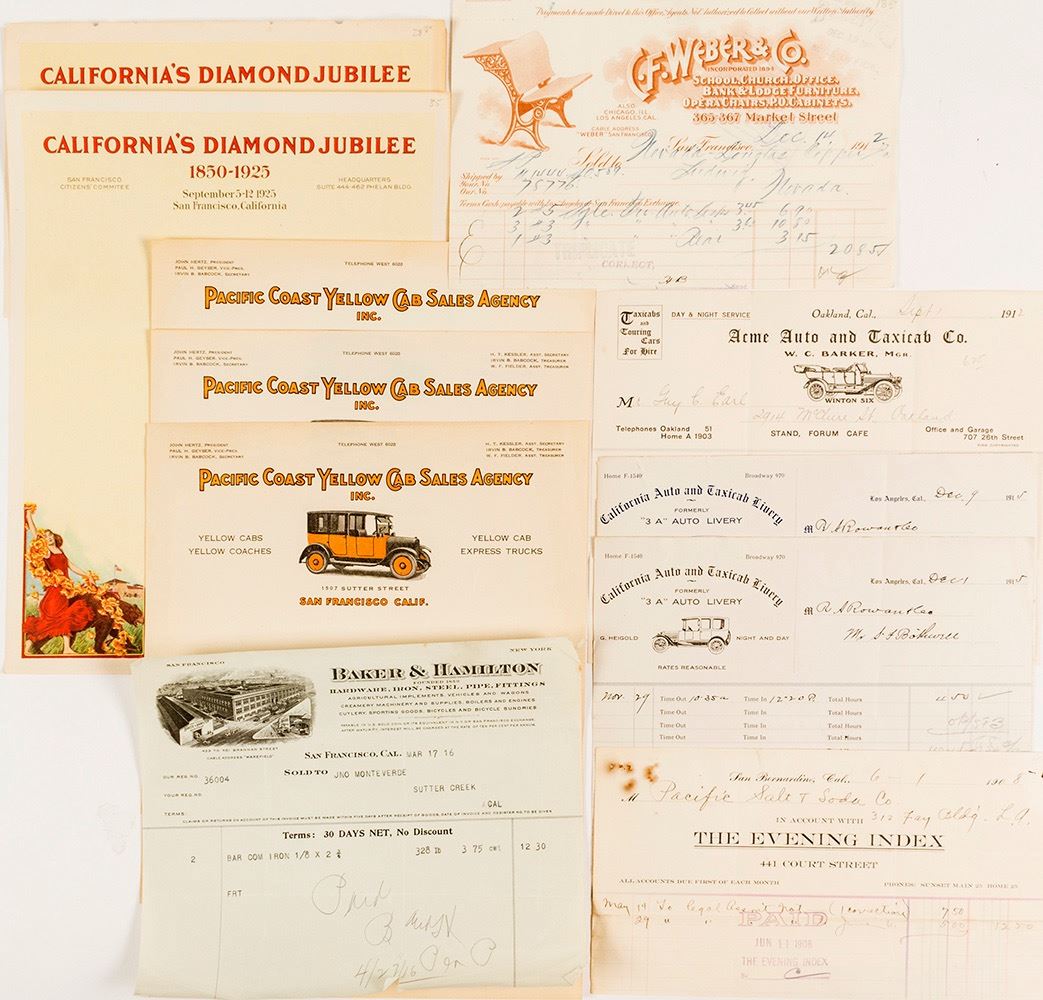 CALIFORNIA'S DIAMOND JUBILEE
CALIFORNIA'S DIAMOND JUBILEE
1850-1925
SAN FRANCISCO
CITIZENS' COMMITEE
HEADQUARTERS
SUITE 444-462 PHELAN BLDG.
September 5-12 1925
San Francisco, California
Payments to be made Direct to this Office, Agents Not Authorized to Collect without our Written Authority
C.F. WEBER & CO.
INCORPORATED 1894
SCHOOL, CHURCH, OFFICE,
BANK & LODGE FURNITURE,
OPERA CHAIRS, P.O. CABINETS.
365-367 Market Street
ALSO
CHICAGO, ILL.
LOS ANGELES, CAL.
CABLE ADDRESS
"WEBER" SAN FRANCISCO
San Francisco, Dec. 14 1912
Sold to Nevada-Douglas Copper Co
Ludwig,
Nevada.
Shipped by
Your No.
Our No. 78776
2 #5 3 45 6 90
3 #3 " " 3 60 10 80
1 #3 3 15
20 85
CORRECT,
JOHN HERTZ, PRESIDENT
PAUL H. GEYSER, VICE-PRES.
IRVIN B. BABCOCK, SECRETARY
TELEPHONE WEST 6020
PACIFIC COAST YELLOW CAB SALES AGENCY
INC.
JOHN HERTZ, PRESIDENT
PAUL H. GEYSER, VICE-PRES.
IRVIN B. BABCOCK, SECRETARY
TELEPHONE WEST 6020
H. T. KESSLER, ASST. SECRETARY
IRVIN B. BABCOCK, TREASURER
W. F. FIELDER, ASST. TREASURER
PACIFIC COAST YELLOW CAB SALES AGENCY
INC.
JOHN HERTZ, PRESIDENT
PAUL H. GEYSER, VICE-PRES.
IRVIN B. BABCOCK, SECRETARY
TELEPHONE WEST 6020
H. T. KESSLER, ASST. SECRETARY
IRVIN B. BABCOCK, TREASURER
W. F. FIELDER, ASST. TREASURER
PACIFIC COAST YELLOW CAB SALES AGENCY
INC.
YELLOW CABS
YELLOW COACHES
YELLOW CAB
EXPRESS TRUCKS
1507 SUTTER STREET
SAN FRANCISCO CALIF.
Taxicabs
and
Touring
Cars
For Hire
DAY & NIGHT SERVICE
Oakland, Cal., Sept 1 1912
Acme Auto and Taxicab Co.
W. C. BARKER, MGR.
WINTON SIX
Mr Guy C. Earl
2914 McClure St. Oakland
Telephones Oakland 51
Home A 1903
STAND, FORUM CAFE
Office and Garage
707 26th Street
Home F-1540
Broadway 970
California Auto and Taxicab Livery
FORMERLY
"3 A" AUTO LIVERY
Los Angeles, Cal., Dec 9 1915
M R. A Rowan & Co
Home F-1540
Broadway 970
California Auto and Taxicab Livery
FORMERLY
"3 A" AUTO LIVERY
Los Angeles, Cal., Dec 1 1915
M R. A Rowan & Co
G. HEIGOLD
NIGHT AND DAY
RATES REASONABLE
Nov. 29 Time Out 10:35 a Time In 12-20 P. Total Hours
Time Out Time In Total Hours
Time Out Time In Total Hours
Time Out Time In Total Hours
SAN FRANCISCO
NEW YORK
BAKER & HAMILTON
FOUNDED 1850
HARDWARE, IRON, STEEL, PIPE, FITTINGS
AGRICULTURAL IMPLEMENTS, VEHICLES AND WAGONS
CREAMERY MACHINERY AND SUPPLIES, BOILERS AND ENGINES
CUTLERY, SPORTING GOODS, BICYCLES AND BICYCLE SUNDRIES
PAYABLE IN U.S. GOLD COIN OR ITS EQUIVALENT IN U.S. OR SAN FRANCISCO EXCHANGE.
AFTER MATURITY, INTEREST WILL BE CHARGED AT THE RATE OF TEN PER CENT PER ANNUM.
SAN FRANCISCO, CAL. MAR 17 16
OUR REG NO. 36004
SOLD TO JNO MONTEVERDE
YOUR REG NO.
SUTTER CREEK
CAL
TERMS:
CLAIMS OR RETURNS ON ACCOUNT OF THIS INVOICE MUST BE MADE WITHIN FIVE DAYS AFTER RECEIPT OF GOODS, DATE OF INVOICE AND REGISTER NO. TO BE GIVEN
Terms: 30 DAYS NET, No Discount
2 BAR COM IRON 1/8 X 2 ¾ 328 lb 3 75 cwt 12 30
FRT
Paid
4/27/16
San Bernardino, Cal., 6-1 1908
M Pacific Salt & Soda Co.
312 Fay Bldg. L.A.
IN ACCOUNT WITH
THE EVENING INDEX
441 COURT STREET
ALL ACCOUNTS DUE FIRST OF EACH MONTH
PHONES: SUNSET MAIN 25 HOME 25
May 14 To legal 7.50
29 " " 5.00 12.50
PAID
JUN 11 1908
THE EVENING INDEX